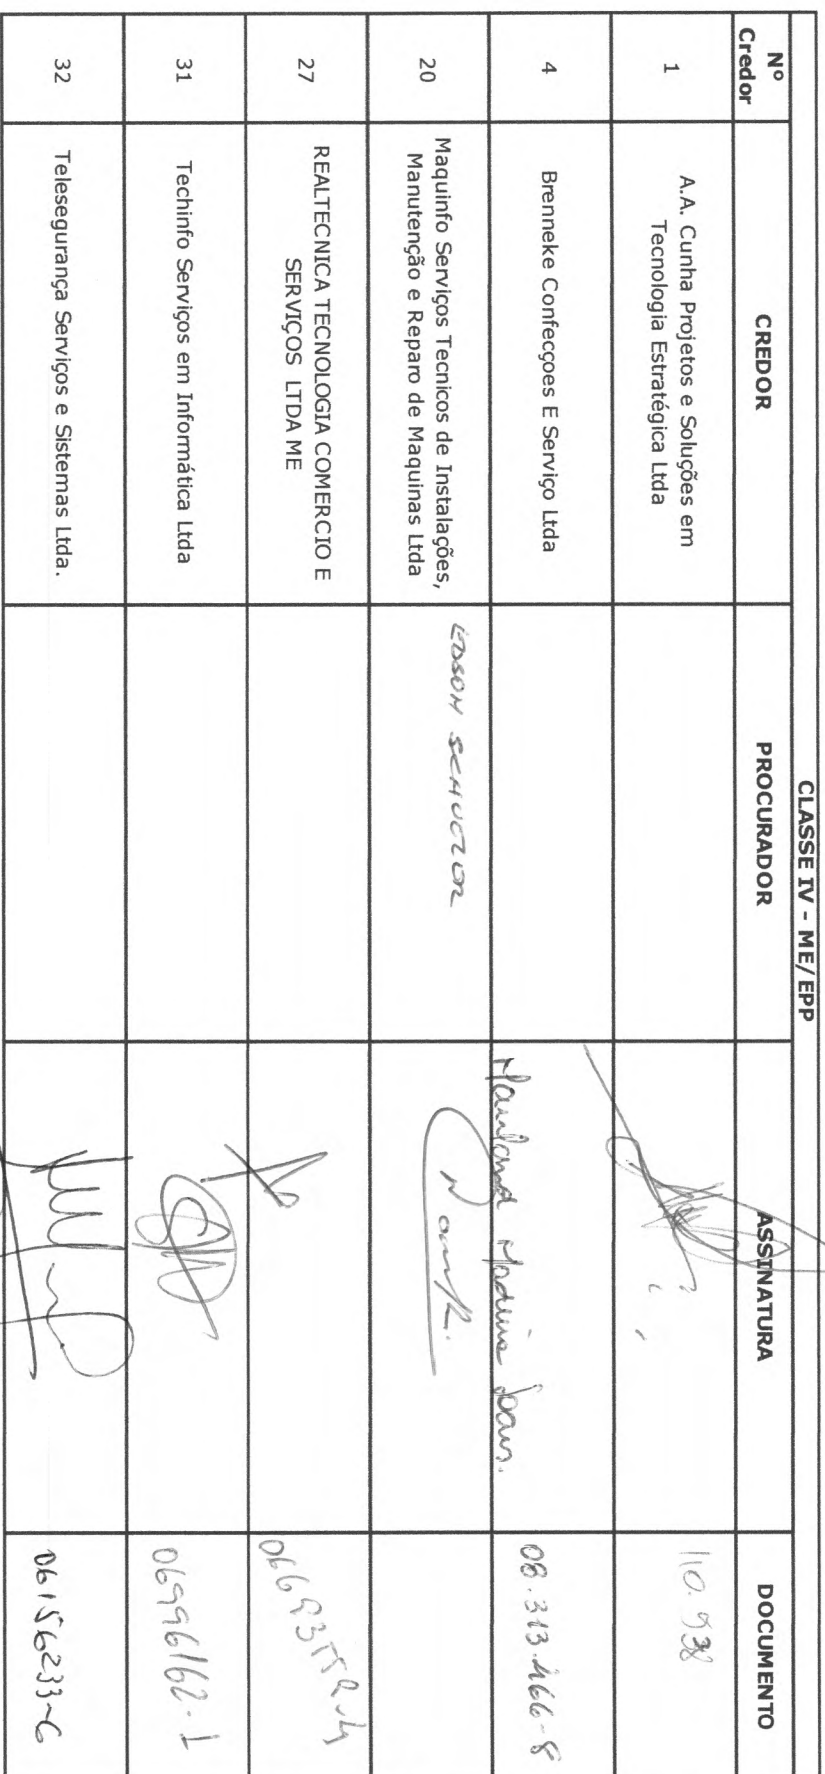 CLASSE IV - ME/EPP
Nº
Credor
CREDOR
PROCURADOR
ASSINATURA
DOCUMENTO
1
A.A. Cunha Projetos e Soluções em
Tecnologia Estratégica Ltda
110.938
4
Brenneke Confecçoes E Serviço Ltda
08.313.466-8
20
Maquinfo Serviços Tecnicos de Instalações,
Manutenção e Reparo de Maquinas Ltda
EDSON
27
REALTECNICA TECNOLOGIA COMERCIO E
SERVIÇOS LTDA ME
31
Techinfo Serviços em Informática Ltda
06996162-1
32
Telesegurança Serviços e Sistemas Ltda.
06156233-6